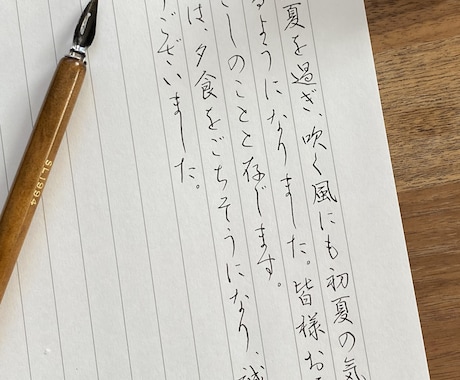 夏を過ぎ、吹く風にも初夏の気
るようになりました。皆様お
しのことと存じます。
は、夕食をごちそうになり、誠
ございました。
SL1994